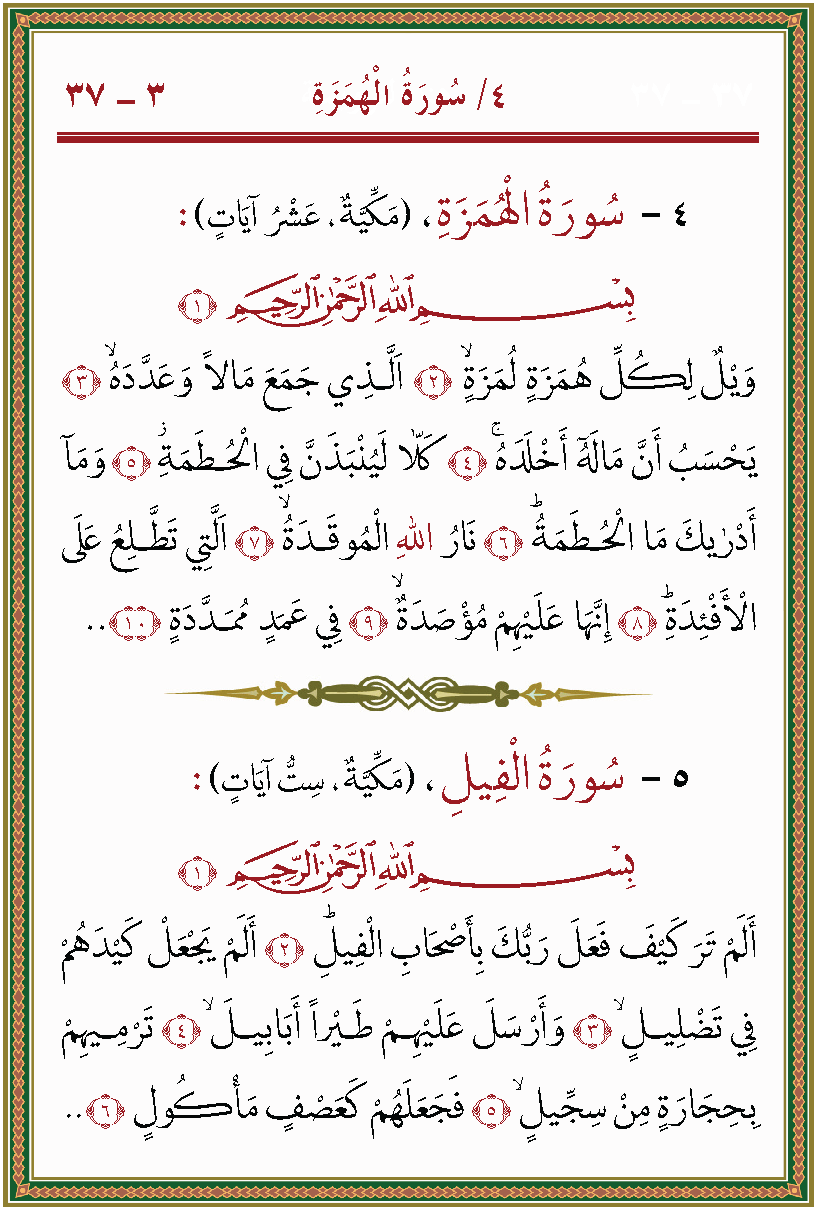 ٤/ سُورَةُ الْهُمَزَةِ ٣ – ٣٧
٤ – سُورَةُ الْهُمَزَةِ، (مَكِّيَّةٌ، عَشْرُ آيَاتٍ) :
بِسْمِ اللهِ الرَّحْمٰنِ الرَّحِيمِ ﴿١﴾
وَيْلٌ لِكُلِّ هُمَزَةٍ لُمَزَةٍۙ ﴿٢﴾ اَلَّذِي جَمَعَ مَالاً وَعَدَّدَهُۙ ﴿٣﴾
يَحْسَبُ أَنَّ مَالَهُٓ أَخْلَدَهُۚ ﴿٤﴾ كَلَّا لَيُنْبَذَنَّ فِي الْحُطَمَةِۘ ﴿٥﴾ وَمَآ
أَدْرٰيكَ مَا الْحُطَمَةُۜ ﴿٦﴾ نَارُ اللهِ الْمُوقَدَةُۙ ﴿٧﴾ اَلَّتِي تَطَّلِعُ عَلَى
الْأَفْئِدَةِۜ ﴿٨﴾ إِنَّهَا عَلَيْهِمْ مُؤْصَدَةٌۙ ﴿٩﴾ فِي عَمَدٍ مُمَدَّدَةٍ ﴿١٠﴾..
٥ – سُورَةُ الْفِيلِ، (مَكِّيَّةٌ، سِتُّ آيَاتٍ) :
بِسْمِ اللهِ الرَّحْمٰنِ الرَّحِيمِ ﴿١﴾
أَلَمْ تَرَ كَيْفَ فَعَلَ رَبُّكَ بِأَصْحَابِ الْفِيلِۜ ﴿٢﴾ أَلَمْ يَجْعَلْ كَيْدَهُمْ
فِي تَضْلِيلٍۙ ﴿٣﴾ وَأَرْسَلَ عَلَيْهِمْ طَيْراً أَبَابِيلَۙ ﴿٤﴾ تَرْمِيهِمْ
بِحِجَارَةٍ مِنْ سِجِّيلٍۙ ﴿٥﴾ فَجَعَلَهُمْ كَعَصْفٍ مَأْكُولٍ ﴿٦﴾..